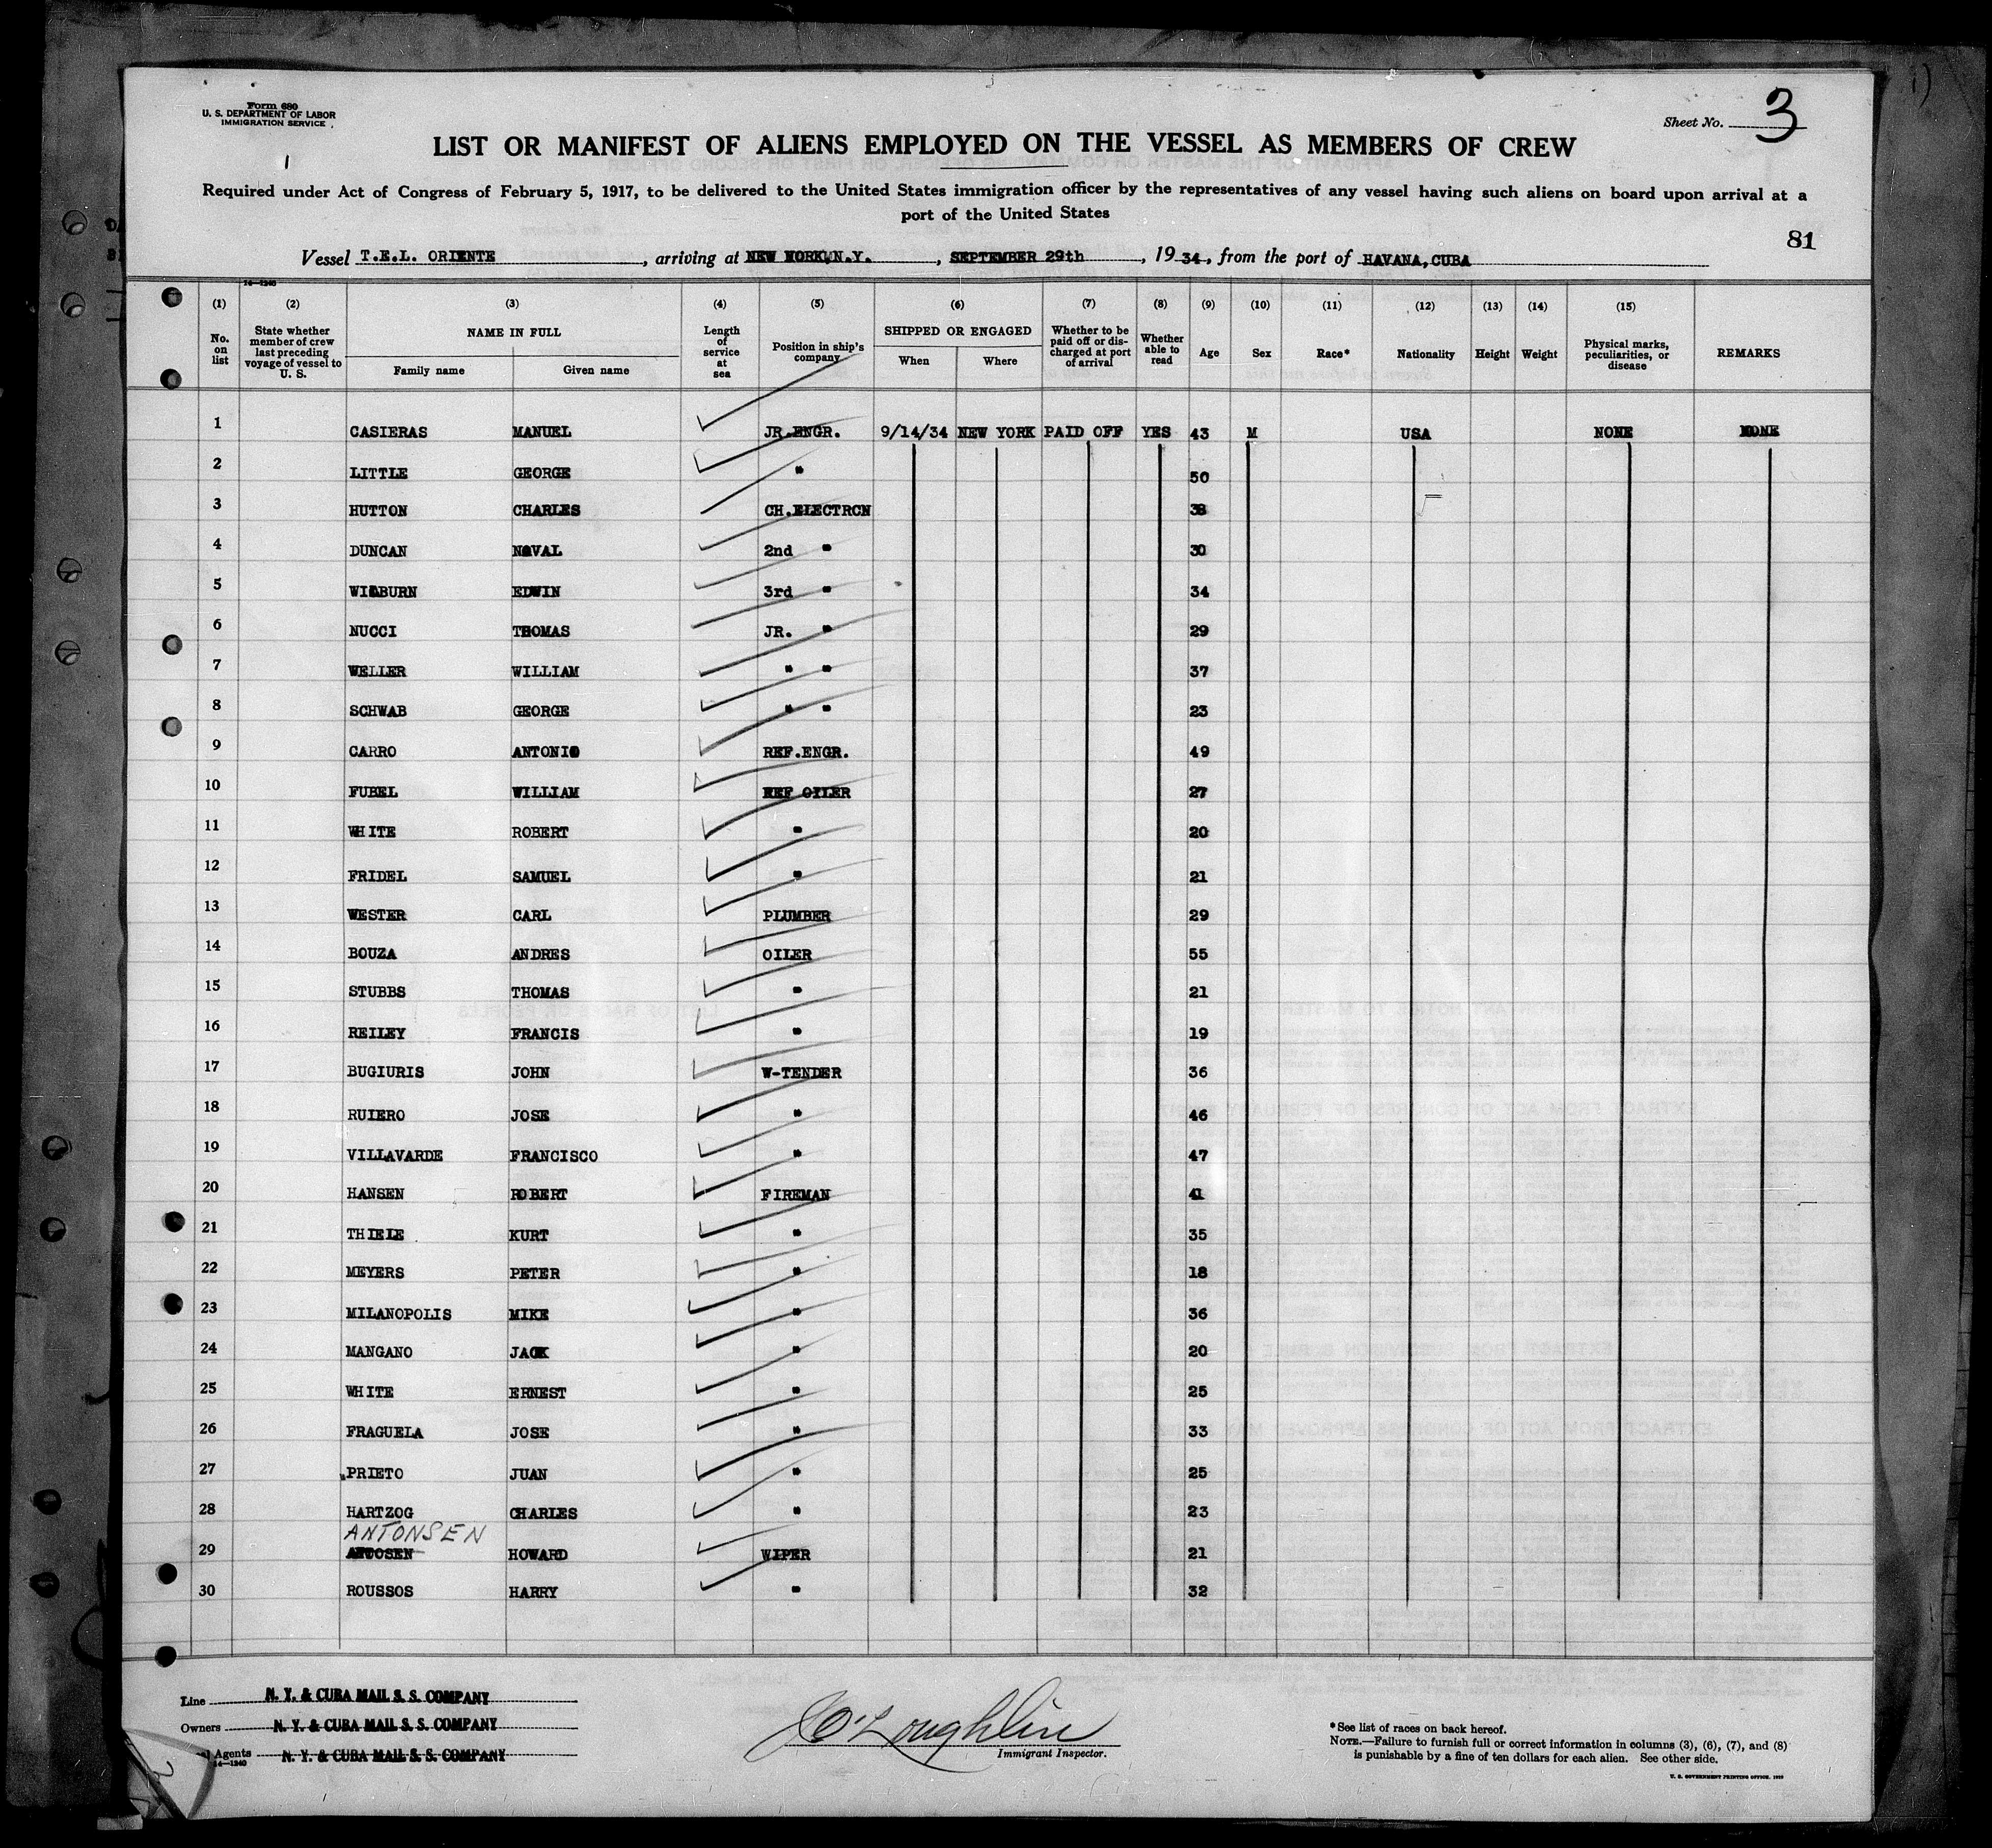 Form 680
U. S. DEPARTMENT OF LABOR
IMMIGRATION SERVICE
Sheet No. 3
LIST OR MANIFEST OF ALIENS EMPLOYED ON THE VESSEL AS MEMBERS OF CREW
Required under Act of Congress of February 5, 1917, to be delivered to the United States immigration officer by the representatives of any vessel having such aliens on board upon arrival at a
port of the United States
81
Vessel T.E.L. ORIENTE, arriving at NEW YORK, N.Y., SEPTEMBER 29th, 1934, from the port of HAVANA, CUBA
14—1240
(1) (2) (3) (4) (5) (6) (7) (8) (9) (10) (11) (12) (13) (14) (15)
No. on list State whether member of crew last preceding voyage of vessel to U. S. NAME IN FULL Family name Given name Length of service at sea Position in ship's company SHIPPED OR ENGAGED When Where Whether to be paid off or discharged at port of arrival Whether able to read Age Sex Race* Nationality Height Weight Physical marks, peculiarities, or disease REMARKS
1 CASIERAS MANUEL JR.ENGR. 9/14/34 NEW YORK PAID OFF YES 43 M USA NONE NONE
2 LITTLE GEORGE " 50
3 HUTTON CHARLES CH.ELECTRCN 38
4 DUNCAN NOVAL 2nd " 30
5 WILBURN EDWIN 3rd " 34
6 NUCCI THOMAS JR. " 29
7 WELLER WILLIAM " " 37
8 SCHWAB GEORGE " " 23
9 CARRO ANTONIO REF.ENGR. 49
10 FUBEL WILLIAM REF OILER 27
11 WHITE ROBERT " 20
12 FRIDEL SAMUEL " 21
13 WESTER CARL PLUMBER 29
14 BOUZA ANDRES OILER 55
15 STUBBS THOMAS " 21
16 REILEY FRANCIS " 19
17 BUGIURIS JOHN W-TENDER 36
18 RUIERO JOSE " 46
19 VILLAVARDE FRANCISCO " 47
20 HANSEN ROBERT FIREMAN 41
21 THIELE KURT " 35
22 MEYERS PETER " 18
23 MILANOPOLIS MIKE " 36
24 MANGANO JACK " 20
25 WHITE ERNEST " 25
26 FRAGUELA JOSE " 33
27 PRIETO JUAN " 25
28 HARTZOG CHARLES " 23
ANTONSEN
29 ANTOSEN HOWARD WIPER 21
30 ROUSSOS HARRY " 32
Line N. Y. & CUBA MAIL S. S. COMPANY
Owners N. Y. & CUBA MAIL S. S. COMPANY
Agents N. Y. & CUBA MAIL S. S. COMPANY
14—1240
J O'Loughlin
Immigrant Inspector.
*See list of races on back hereof.
NOTE.—Failure to furnish full or correct information in columns (3), (6), (7), and (8)
is punishable by a fine of ten dollars for each alien. See other side.
U. S. GOVERNMENT PRINTING OFFICE